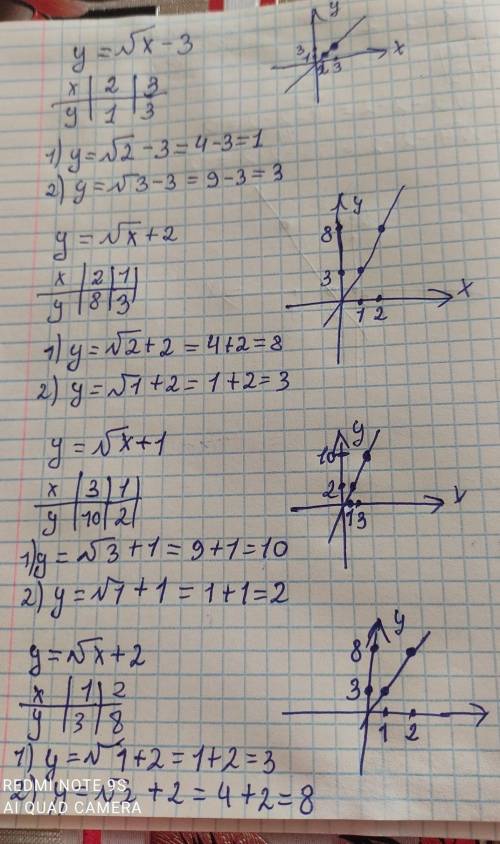 y = √x - 3
x | 2 | 3
y | 1 | 3
1) y = √2 - 3 = 4 - 3 = 1
2) y = √3 - 3 = 9 - 3 = 3
y
3
1
2 3
x
y = √x + 2
x | 2 | 1
y | 8 | 3
1) y = √2 + 2 = 4 + 2 = 8
2) y = √1 + 2 = 1 + 2 = 3
y
8
3
1 2
x
y = √x + 1
x | 3 | 1
y | 10 | 2
1) y = √3 + 1 = 9 + 1 = 10
2) y = √1 + 1 = 1 + 1 = 2
y
10
2
1 3
x
y = √x + 2
x | 1 | 2
y | 3 | 8
1) y = √1 + 2 = 1 + 2 = 3
2) y = √2 + 2 = 4 + 2 = 8
y
8
3
1 2
REDMI NOTE 9S
AI QUAD CAMERA